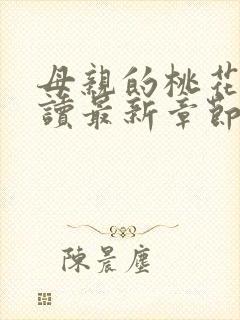 母親的桃花
讀最新章節
陳晨塵